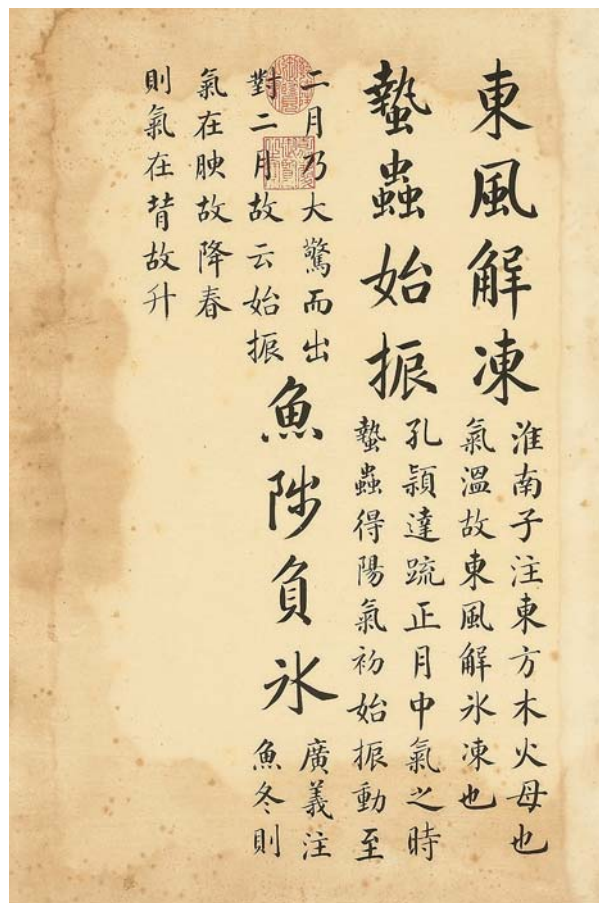 東風解凍
淮南子注東方木火母也
氣溫故東風解氷凍也
蟄蟲始振
孔穎達疏正月中氣之時
蟄蟲得陽氣初始振動至
二月乃大驚而出
對二月故云始振
魚陟負氷
廣義注
魚冬則
氣在腴故降春
則氣在脊故升